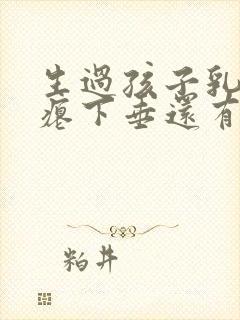 生過孩子乳
瘪下垂還有
粕井